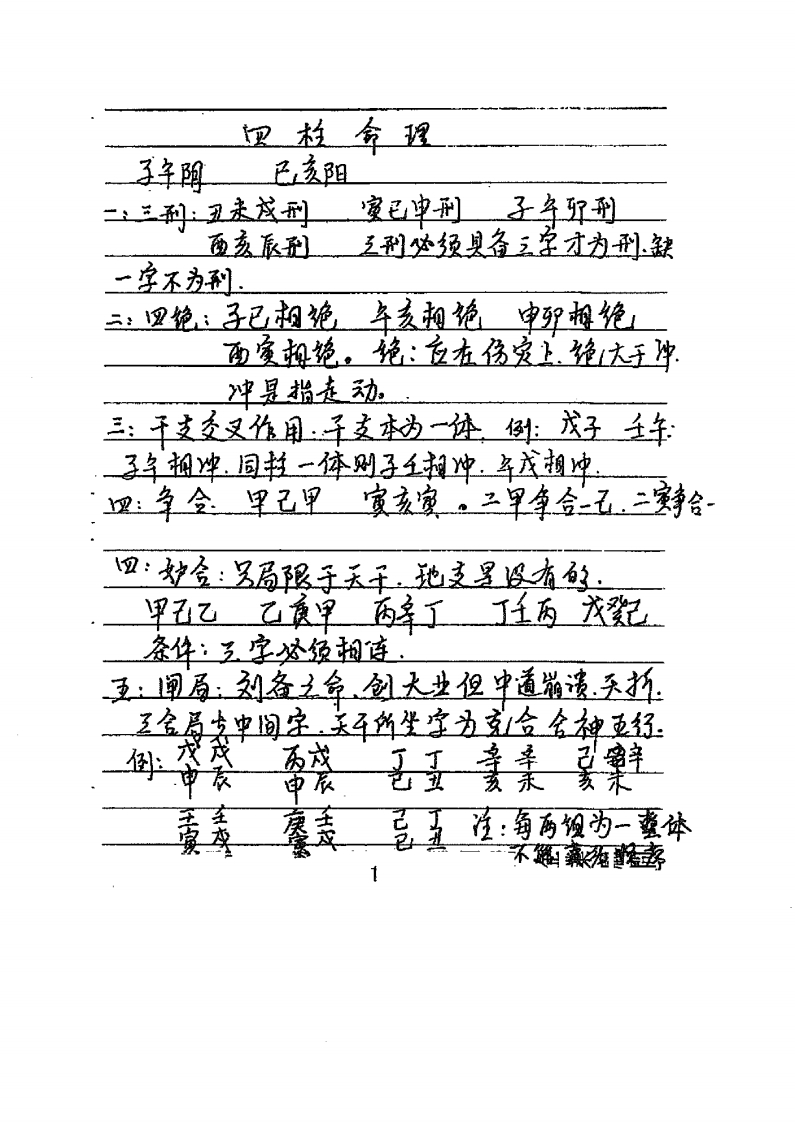 四柱命理
子午阴 巳亥阳
一：三刑：丑未戌刑 寅巳申刑 子午卯刑
酉亥辰刑 三刑必须具备三字才为刑.缺
一字不为刑.
二：四绝：子巳相绝 午亥相绝 申卯相绝
酉寅相绝。绝：应在伤灾上.绝大于冲.
冲是指走动。
三：干支交叉作用.干支本为一体,例：戊子 壬午：
子午相冲.同柱一体则子壬相冲.午戊相冲.
四：争合. 甲己甲 寅亥寅。二甲争合一己.二寅争合一
四：妒合：只局限于天干.地支是没有的.
甲己乙 乙庚甲 丙辛丁 丁壬丙 戊癸己
条件：三字必须相连.
五：闸局：刘备之命.创大业但中道崩溃.夭折.
三合局去中间字.天干所坐字为克合合神五行。
例：戊戊 丙戊 丁丁 辛辛 己辛
申辰 申辰 巳丑 亥未 亥未
壬壬 庚壬 己丁 注：每两组为一整体
寅戌 寅戌 巳丑 不
1